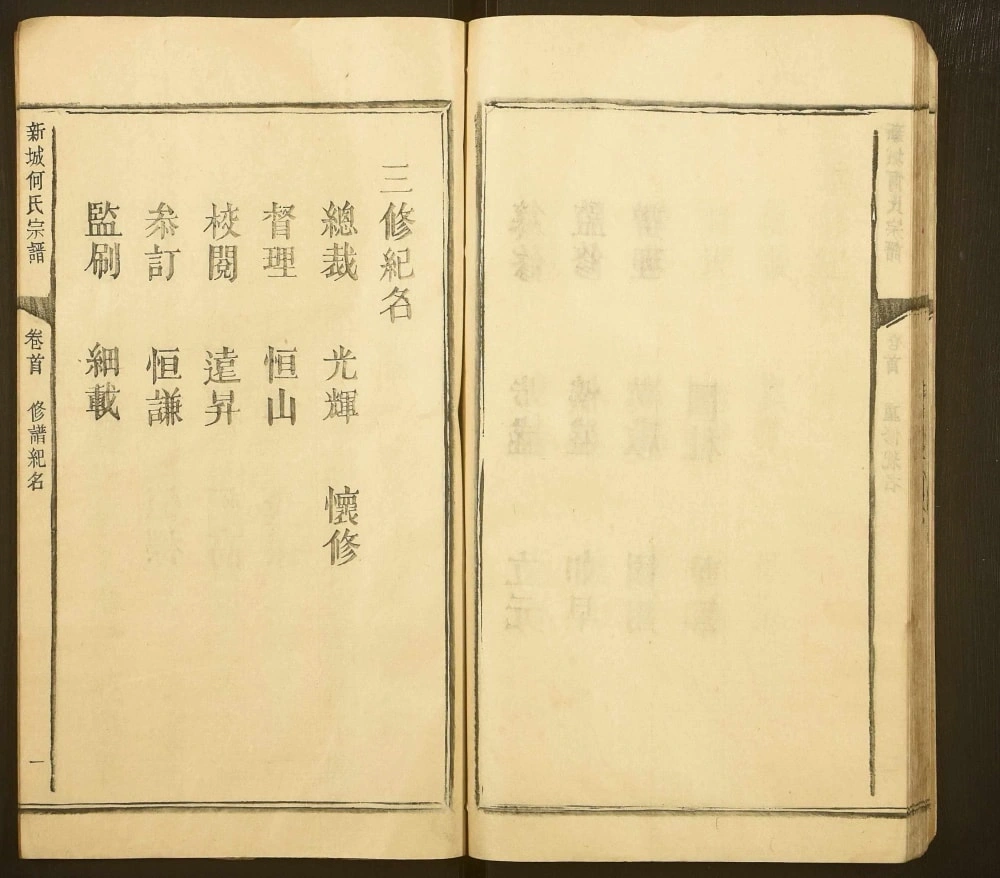 三修紀名
總裁 光輝 懷修
督理 恒山
校閱 遠昇
叅訂 恒謙
監刷 細載
新城何氏宗譜 卷首 修譜紀名 一